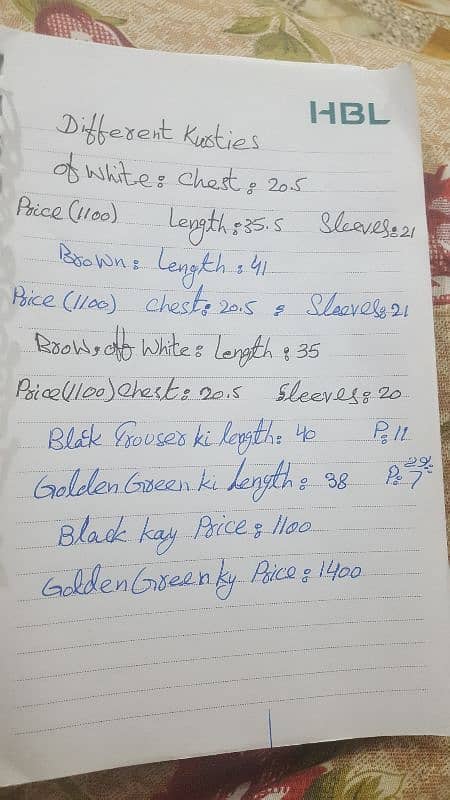 HBL
Different Kurties
of white: Chest: 20.5
Price (1100) Length: 35.5 Sleeves: 21
Brown: Length: 41
Price (1100) Chest: 20.5 : Sleeves: 21
Brow, off White: Length: 35
Price (1100) Chest: 20.5 Sleeves: 20
Black Trouser ki length: 40 P: 11
Golden Green ki Length: 38 P: 7
Black kay Price: 1100
Golden Green ky Price: 1400